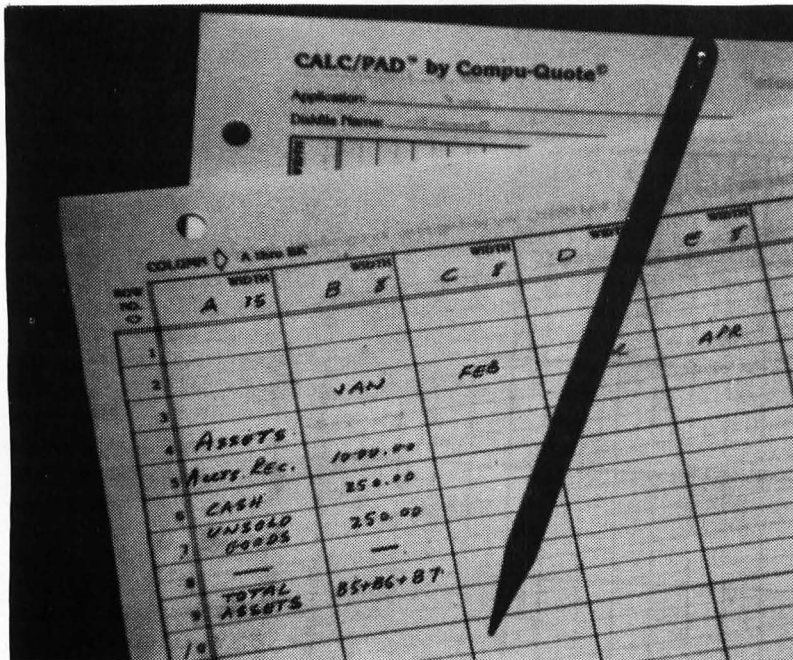 CALC/PAD™ by Compu-Quote©
Application:
Diskfile Name:
COLUMN A thru BK
WIDTH WIDTH WIDTH WIDTH WIDTH
ROW NO. A 15 B 8 C 8 D E 8
1
2 JAN FEB APR
3
4 ASSETS
5 Accts. Rec. 1000.00
6 CASH 250.00
7 UNSOLD GOODS 250.00
8 — —
9 TOTAL ASSETS B5+B6+B7
10